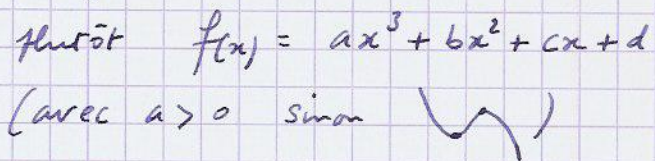 plutôt f(x) = ax³ + bx² + cx + d
(avec a > 0 sinon )